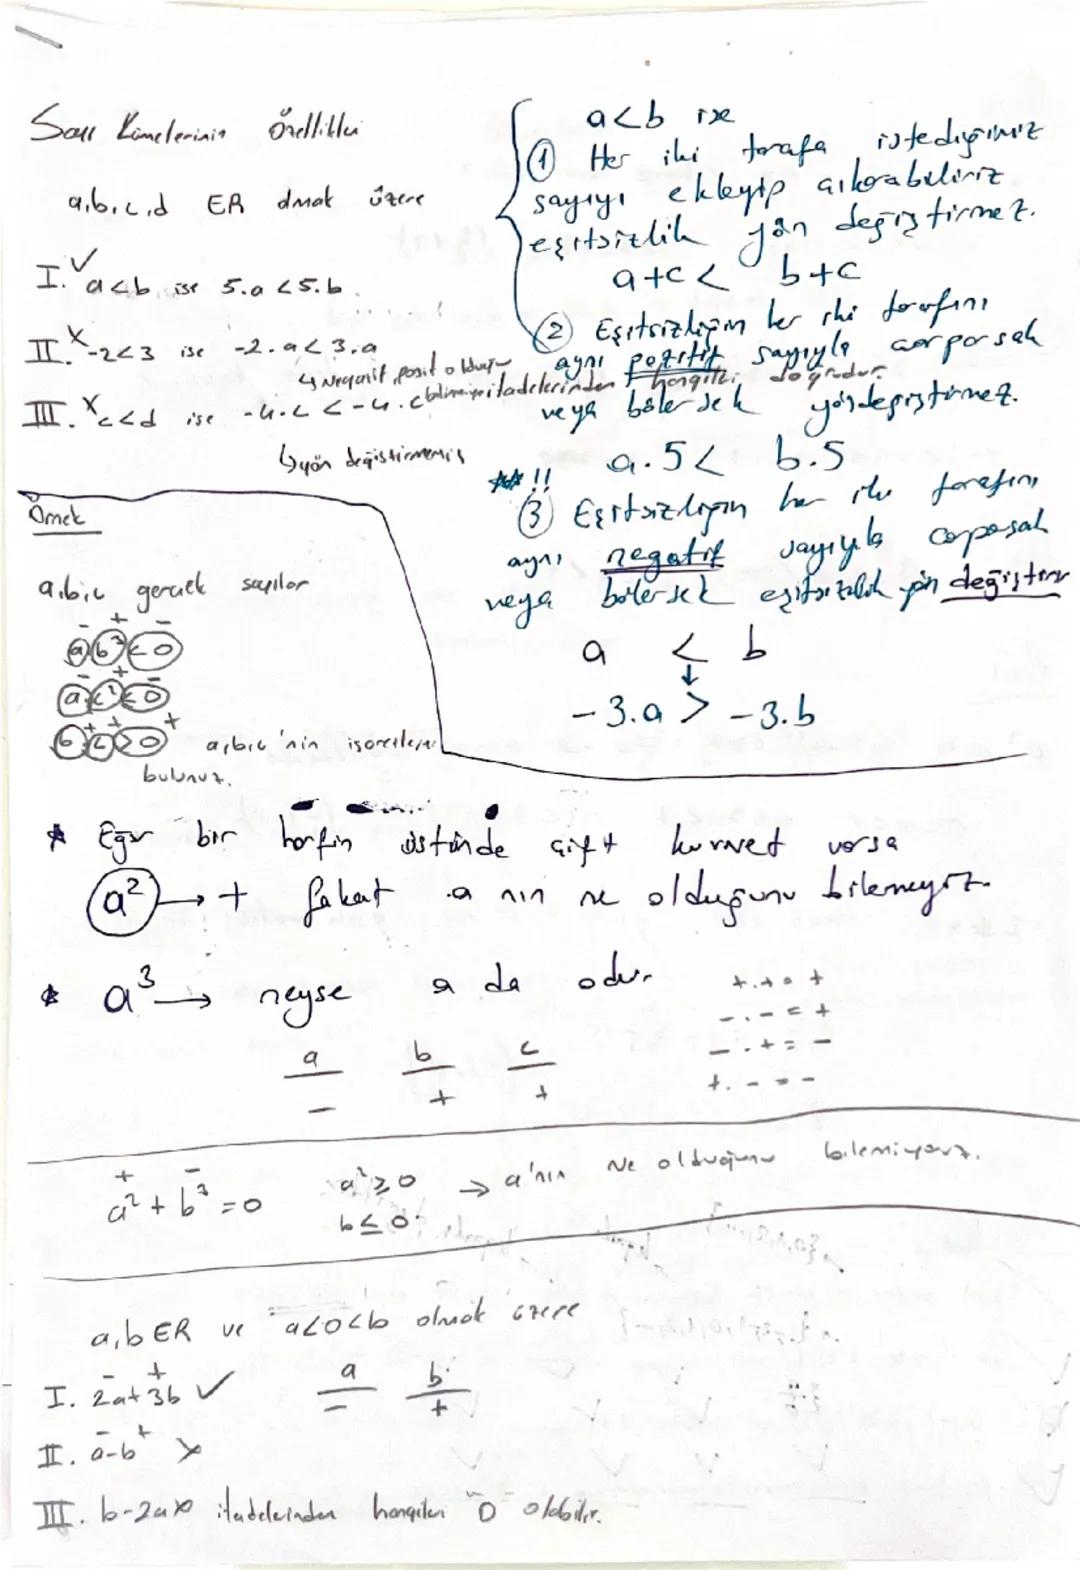 Sayı Kümelerinin Özellikleri
a,b,c,d ER olmak üzere
I. ✓ a<b ise 5.a <5.b.
II. x -2<3 ise -2.a< 3.a
↳ Negatif, posit olduğu
III. x c<d ise -4.c < -4.c ifadelerinden hangileri doğrudur.
↳yön değiştirmemiş
{ a<b ise
① Her iki tarafa istediğimiz
sayıyı ekleyip çıkarabiliriz
eşitsizlik yön değiştirmez.
a+c < b+c
② Eşitsizliğin her iki tarafını
aynı pozitif sayıyla çarparsak
veya bölersek yön değiştirmez.
a.5< b.5
!!
③ Eşitsizliğin her iki tarafını
aynı negatif sayıyla çarparsak
veya bölersek eşitsizlik yön değiştirir
a < b
↓
-3.a > -3.b
Örnek
a,b,c gerçek sayılar
- + -
a b³ < 0
- + -
+ + +
b c > 0 a,b,c'nin işaretlerini
bulunuz.
* Eğer bir harfin üstünde çift kuvvet varsa
a² → + fakat a nın ne olduğunu bilemeyiz.
* a³ → neyse a da odur.
a b c
- + +
+.+=+
-.-=+
-.+=-
+.-=-
+ -
a² + b³ =0
a²≥0 → a'nın Ne olduğunu bilemiyoruz.
b≤0
a,b ER ve a<0<b olmak üzere
a b
- +
- +
I. 2a+3b ✓
- +
II. a-b x
III. b-2a x ifadelerinden hangileri 0 olabilir.